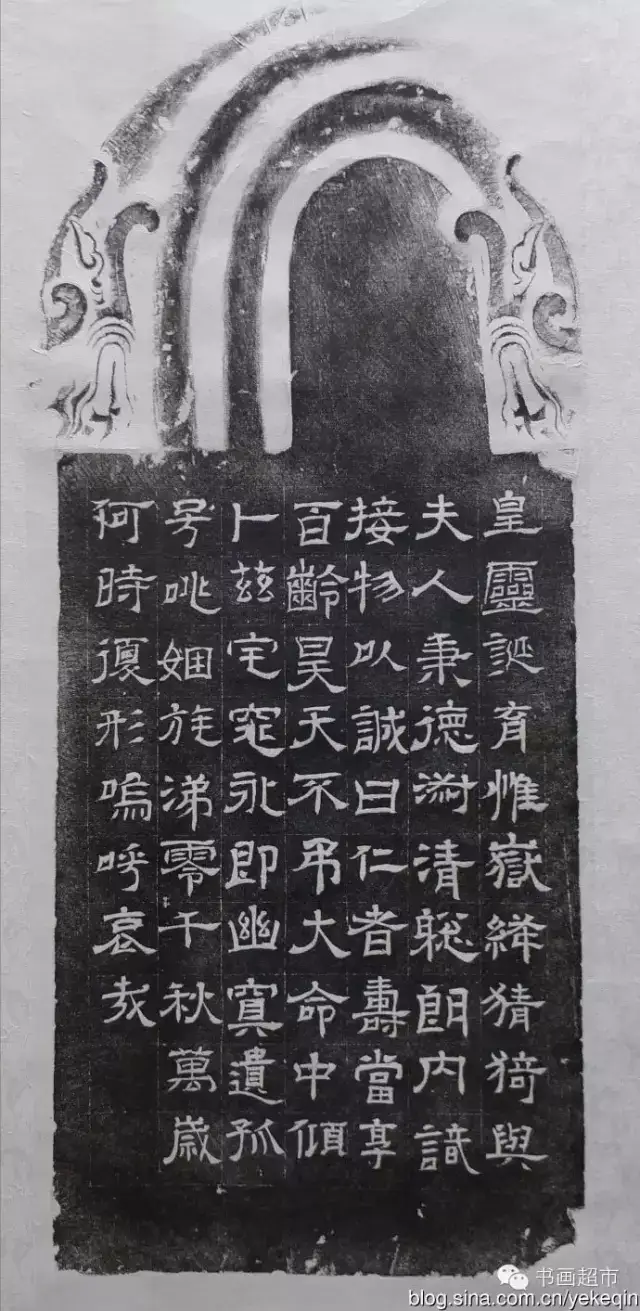 皇靈誕育惟嶽絳猜猗與
夫人秉德淑清聡朗内識
接物以誠曰仁者壽當享
百齡昊天不弔大命中傾
卜茲宅窕永即幽冥遺孤
号咷姻族涕零千秋萬歲
何時復形嗚呼哀哉
书画超市
blog.sina.com.cn/yekeqin